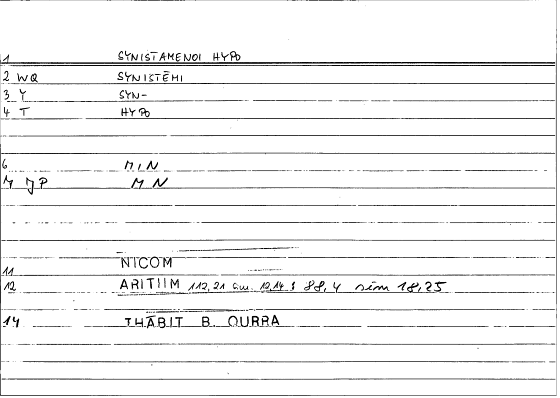 1 SYNISTAMENOI HYPO
2 WQ SYNISTĒMI
3 Y SYN-
4 T HYPO
6 M I N
M JP M N
11 NICOM
12 ARITIIM 112,21 12,14 88,4 sim 18,25
14 THĀBIT B. QURRA